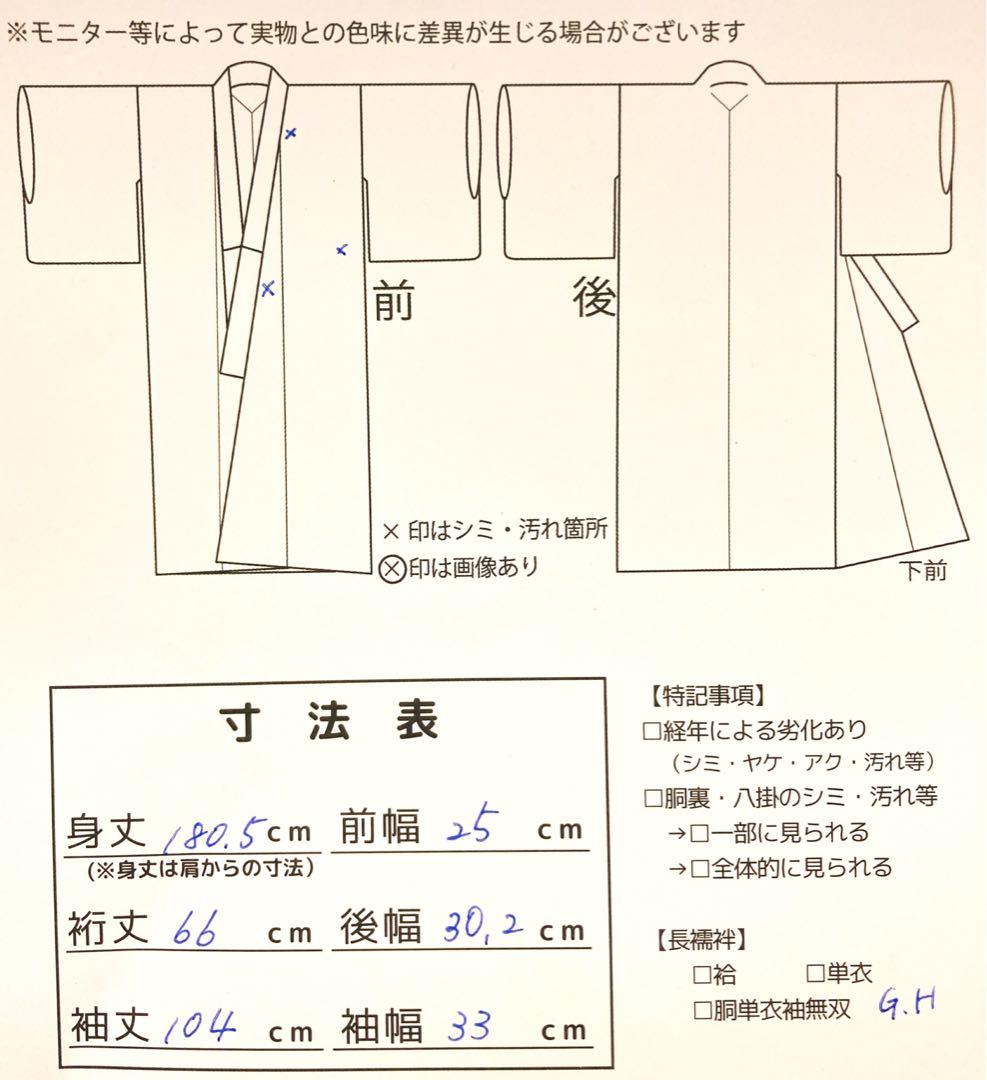 ※モニター等によって実物との色味に差異が生じる場合がございます
前
後
× 印はシミ・汚れ箇所
Ⓧ印は画像あり
下前
寸法表
身丈 180.5cm 前幅 25 cm
(※身丈は肩からの寸法)
裄丈 66 cm 後幅 30,2 cm
袖丈 104 cm 袖幅 33 cm
【特記事項】
□経年による劣化あり
(シミ・ヤケ・アク・汚れ等)
□胴裏・八掛のシミ・汚れ等
→□一部に見られる
→□全体的に見られる
【長襦袢】
□袷 □単衣
□胴単衣袖無双 G.H